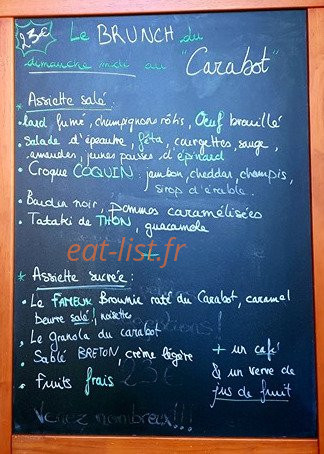 23€
Le BRUNCH du
dimanche midi au "Carabot"
* Assiette salé :
• lard fumé, champignons rôtis, Oeuf brouillé
• Salade d'épeautre, féta, courgettes, sauge,
amandes, jeunes pousses d'épinard
• Croque COQUIN jambon, cheddar, champis,
sirop d'érable..
• Boudin noir, pommes caramélisées
• Tataki de THON, guacamole
eat-list.fr
* Assiette sucrée :
• Le FAMEUX Brownie raté du Carabot, caramel
beurre salé!, noisettes
• Le granola du carabot
• Sablé BRETON, crème légère
• Fruits frais
+ un café
& un verre de
jus de fruit
Venez nombreux!!!